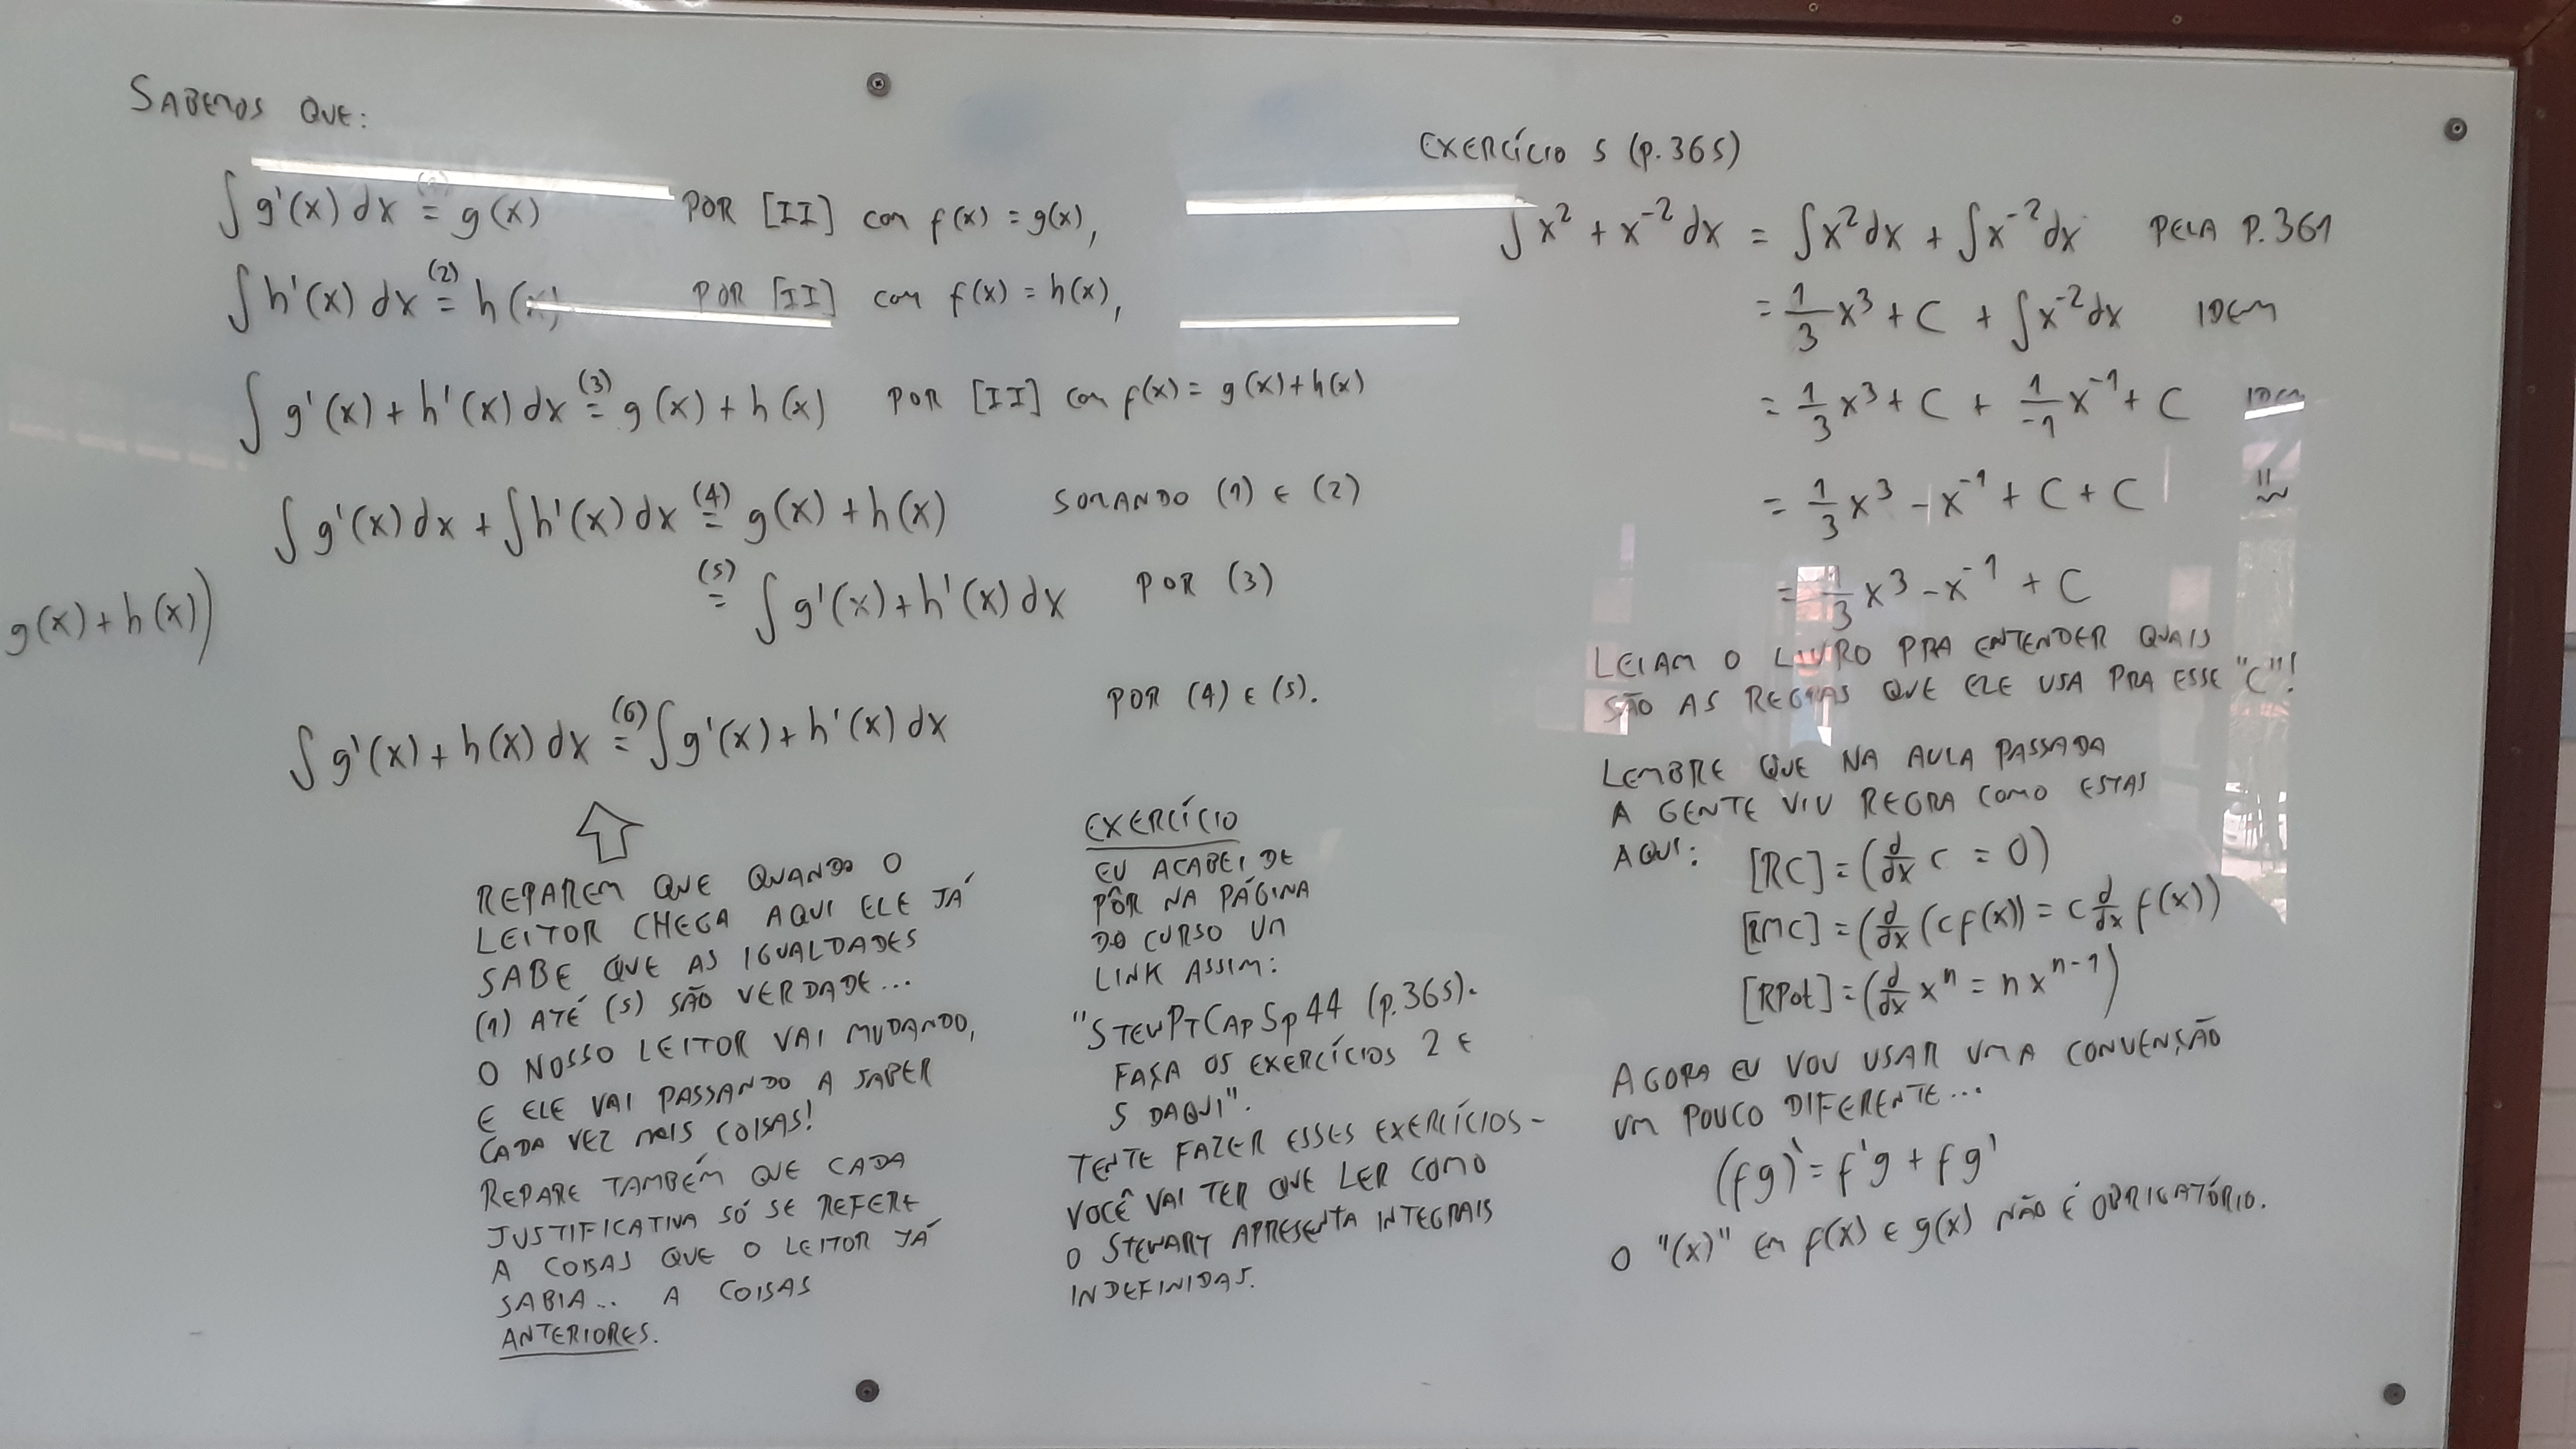 SABEMOS QUE:
∫ g'(x) dx = g(x) POR [II] COM f(x) = g(x),
∫ h'(x) dx (2)= h(x) POR [II] COM f(x) = h(x),
∫ g'(x) + h'(x) dx (3)= g(x) + h(x) POR [II] COM f(x) = g(x) + h(x)
∫ g'(x) dx + ∫ h'(x) dx (4)= g(x) + h(x) SOMANDO (1) E (2)
(5)= ∫ g'(x) + h'(x) dx POR (3)
g(x) + h(x))
∫ g'(x) + h(x) dx (6)= ∫ g'(x) + h'(x) dx POR (4) E (5).
REPAREM QUE QUANDO O
LEITOR CHEGA AQUI ELE JÁ
SABE QUE AS IGUALDADES
(1) ATÉ (5) SÃO VERDADE...
O NOSSO LEITOR VAI MUDANDO,
E ELE VAI PASSANDO A SABER
CADA VEZ MAIS COISAS!
REPARE TAMBÉM QUE CADA
JUSTIFICATIVA SÓ SE REFERE
A COISAS QUE O LEITOR JÁ
SABIA... A COISAS
ANTERIORES.
EXERCÍCIO
EU ACABEI DE
PÔR NA PÁGINA
DO CURSO UM
LINK ASSIM:
"STEWPTCAP5P44 (p.365).
FAÇA OS EXERCÍCIOS 2 E
5 DAQUI".
TENTE FAZER ESSES EXERCÍCIOS -
VOCÊ VAI TER QUE LER COMO
O STEWART APRESENTA INTEGRAIS
INDEFINIDAS.
EXERCÍCIO 5 (p.365)
∫ x² + x⁻² dx = ∫ x² dx + ∫ x⁻² dx PELA P.361
= 1/3 x³ + C + ∫ x⁻² dx IDEM
= 1/3 x³ + C + 1/-1 x⁻¹ + C IDEM
= 1/3 x³ - x⁻¹ + C + C
= 1/3 x³ - x⁻¹ + C
LEIAM O LIVRO PRA ENTENDER QUAIS
SÃO AS REGRAS QUE ELE USA PRA ESSE "C"!
LEMBRE QUE NA AULA PASSADA
A GENTE VIU REGRA COMO ESTAS
AQUI: [RC] = (d/dx C = 0)
[RMC] = (d/dx (C f(x)) = C d/dx f(x))
[RPot] = (d/dx xⁿ = n xⁿ⁻¹)
AGORA EU VOU USAR UMA CONVENÇÃO
UM POUCO DIFERENTE...
(fg)' = f'g + fg'
O "(x)" EM f(x) E g(x) NÃO É OBRIGATÓRIO.